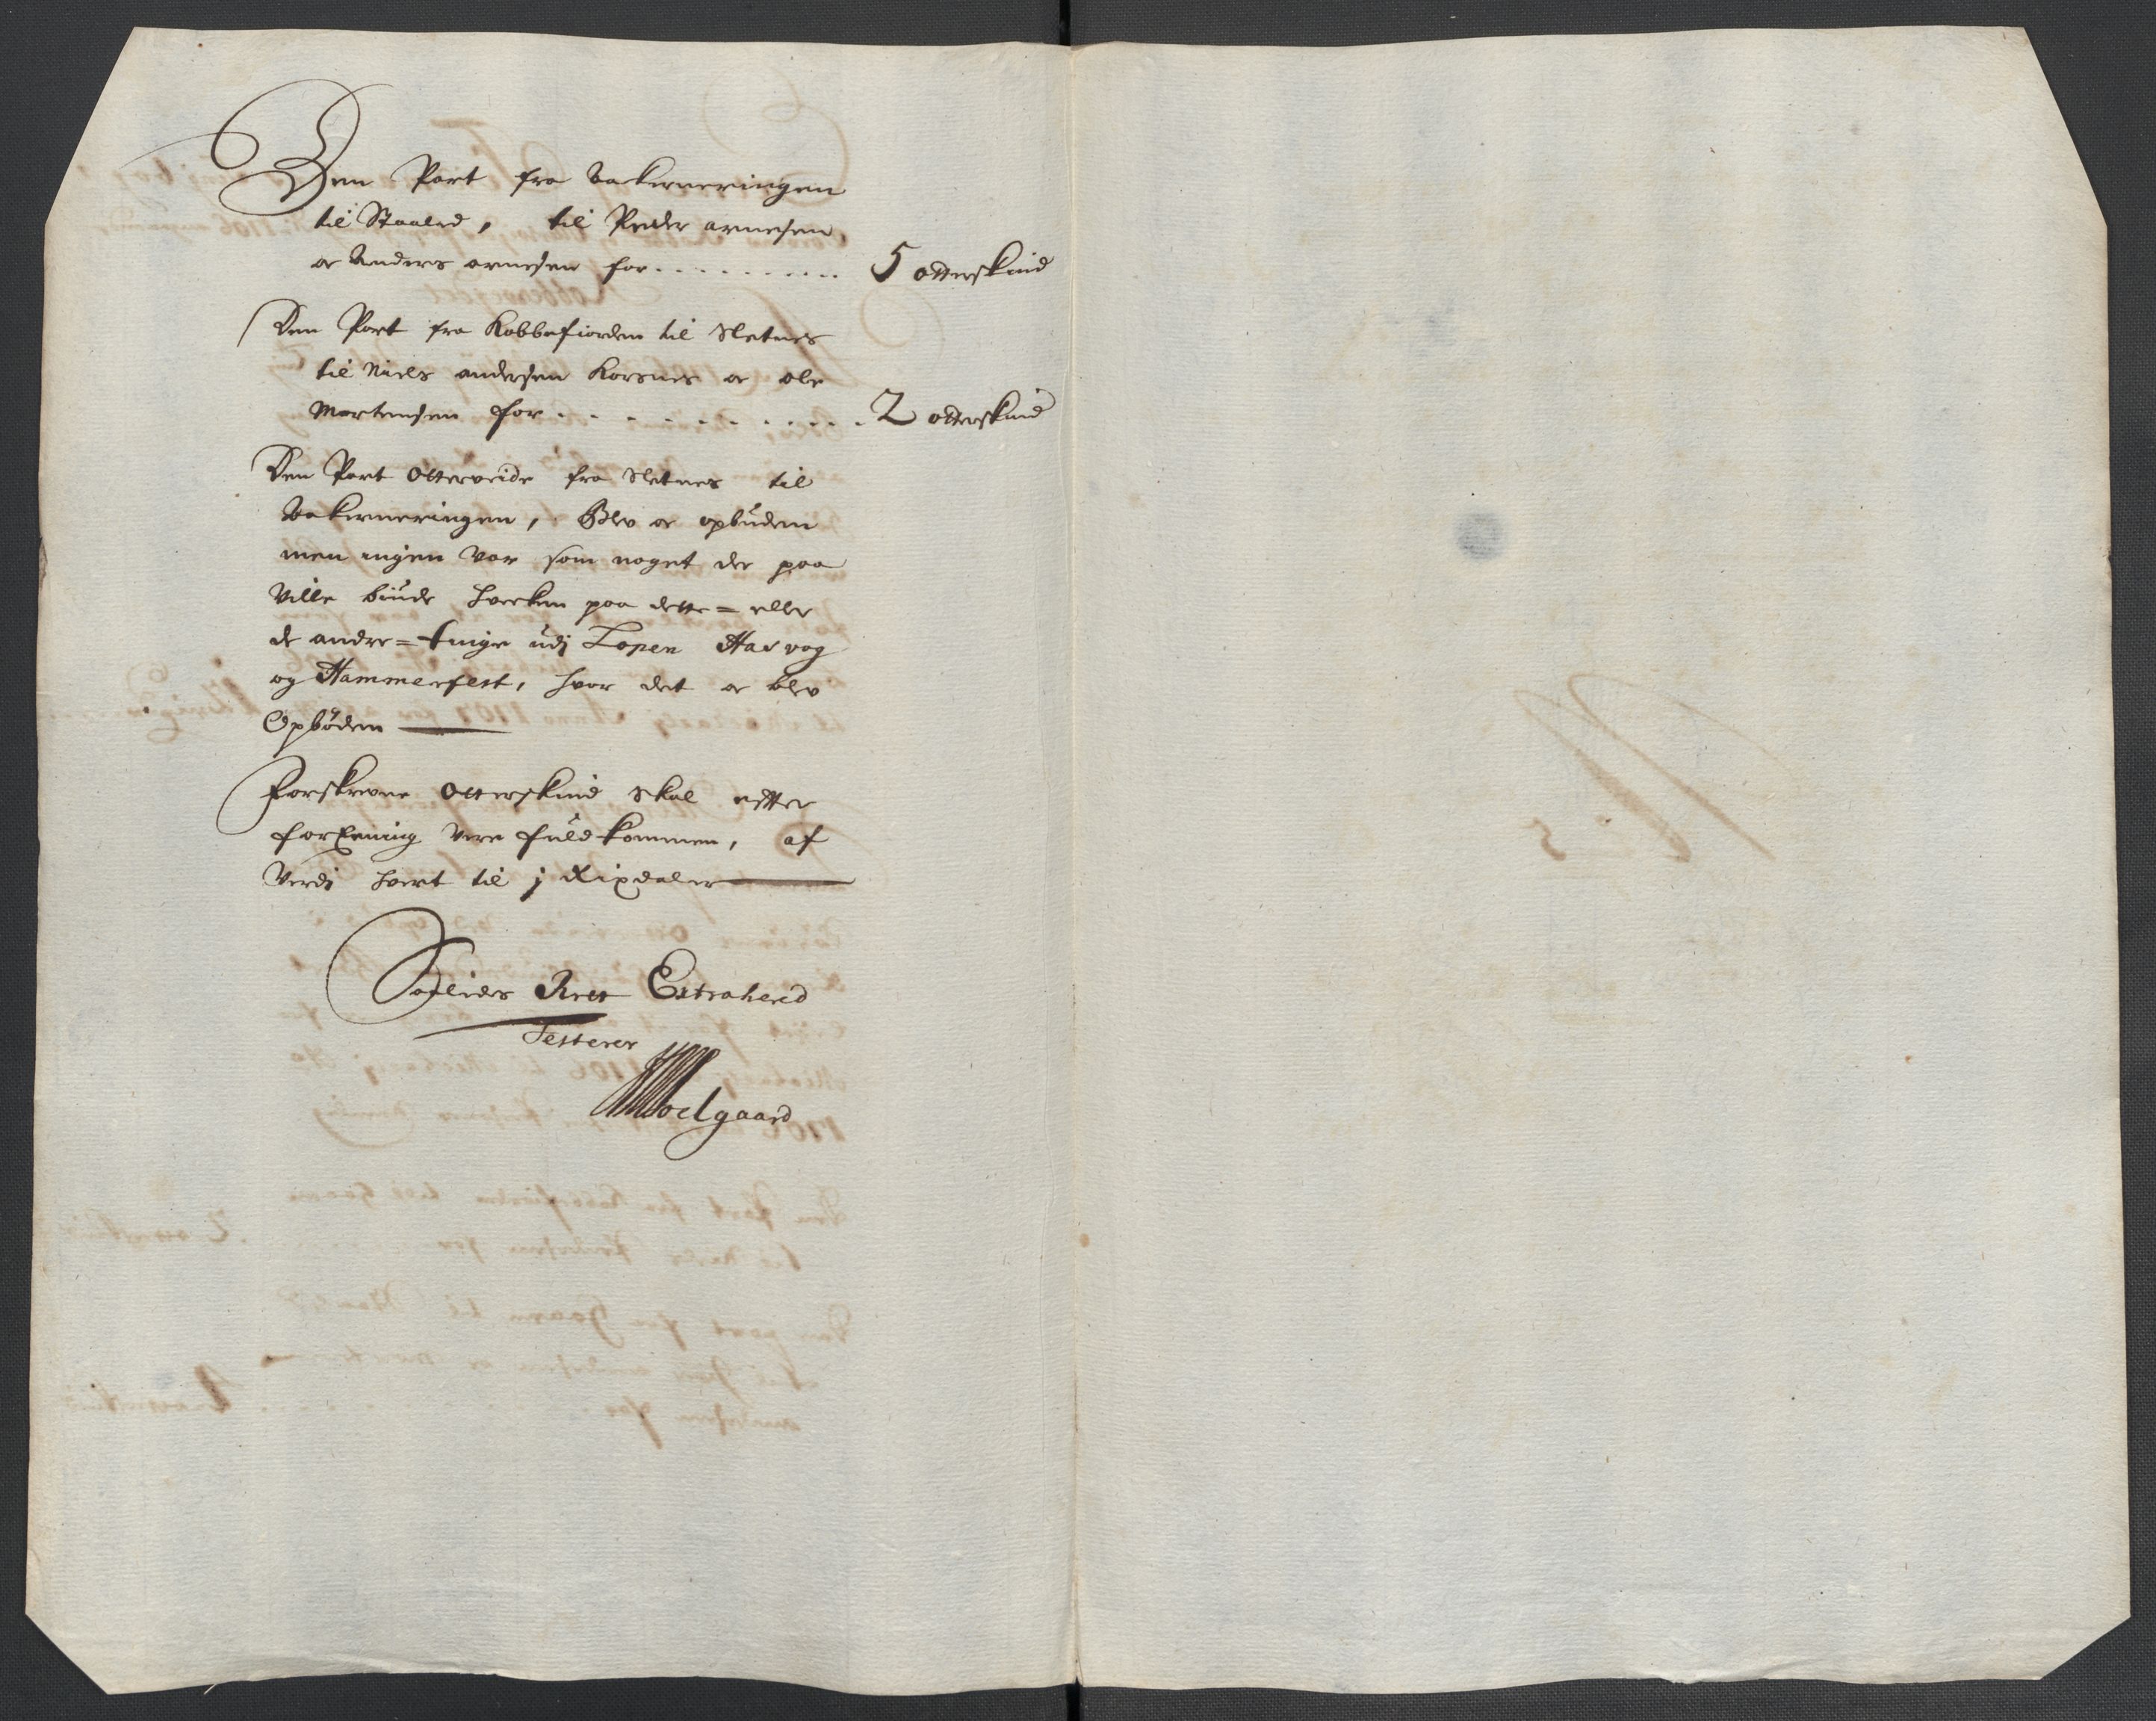 Den Part fra Bakerneringen
til Staaled, til Peder arnesen
oc Anders arnesen for . . . . . . . . . . 5 otterskind
Den Part fra Kobbefiorden til Sletnes
til Niels andersen Korsnes oc ole
Mortensen for . . . . . . . . . . 2 otterskind
Den Part Otterveide fra Sletnes til
Bakerneringen, Blev oc opbuden
men ingen var som noget der paa
ville biude hverken paa dette = eller
de andre = tinge udj Lopen Hasvog
og Hammerfest, hvor det oc blev
Opböden
Forskrevne Otterskind skal efter
forEening vere fuldkommen, af
verdj hvert til j Rixdaler
Saaledes Rret Extraherid
Testerer
Moelgaard